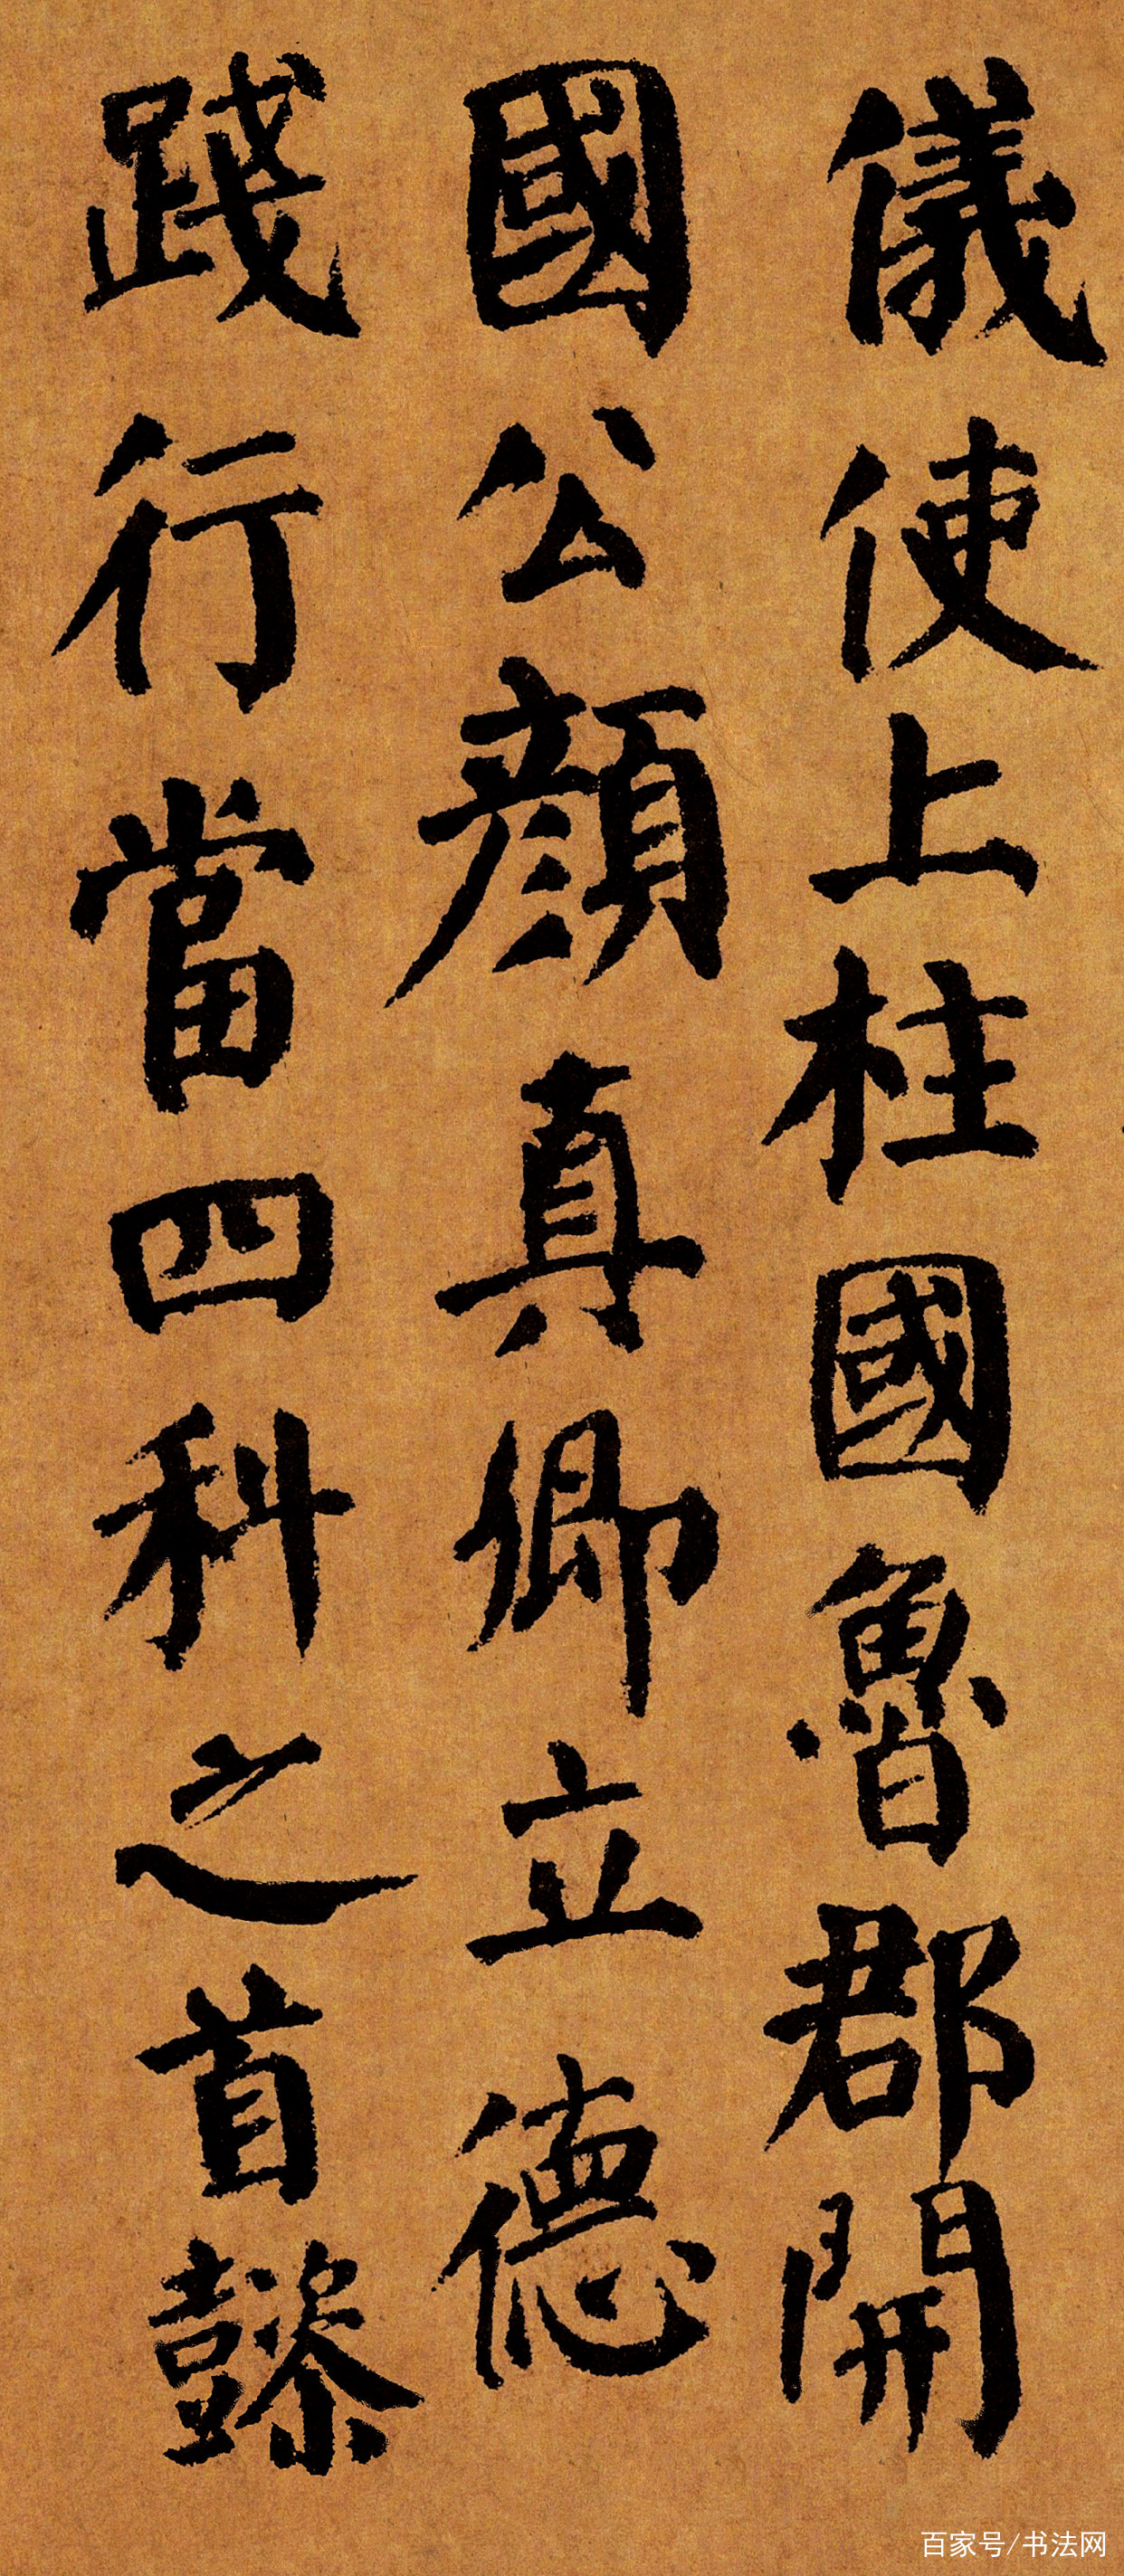 儀使上柱國魯郡開
國公顏真卿立德
踐行當四科之首懿
百家号/书法网